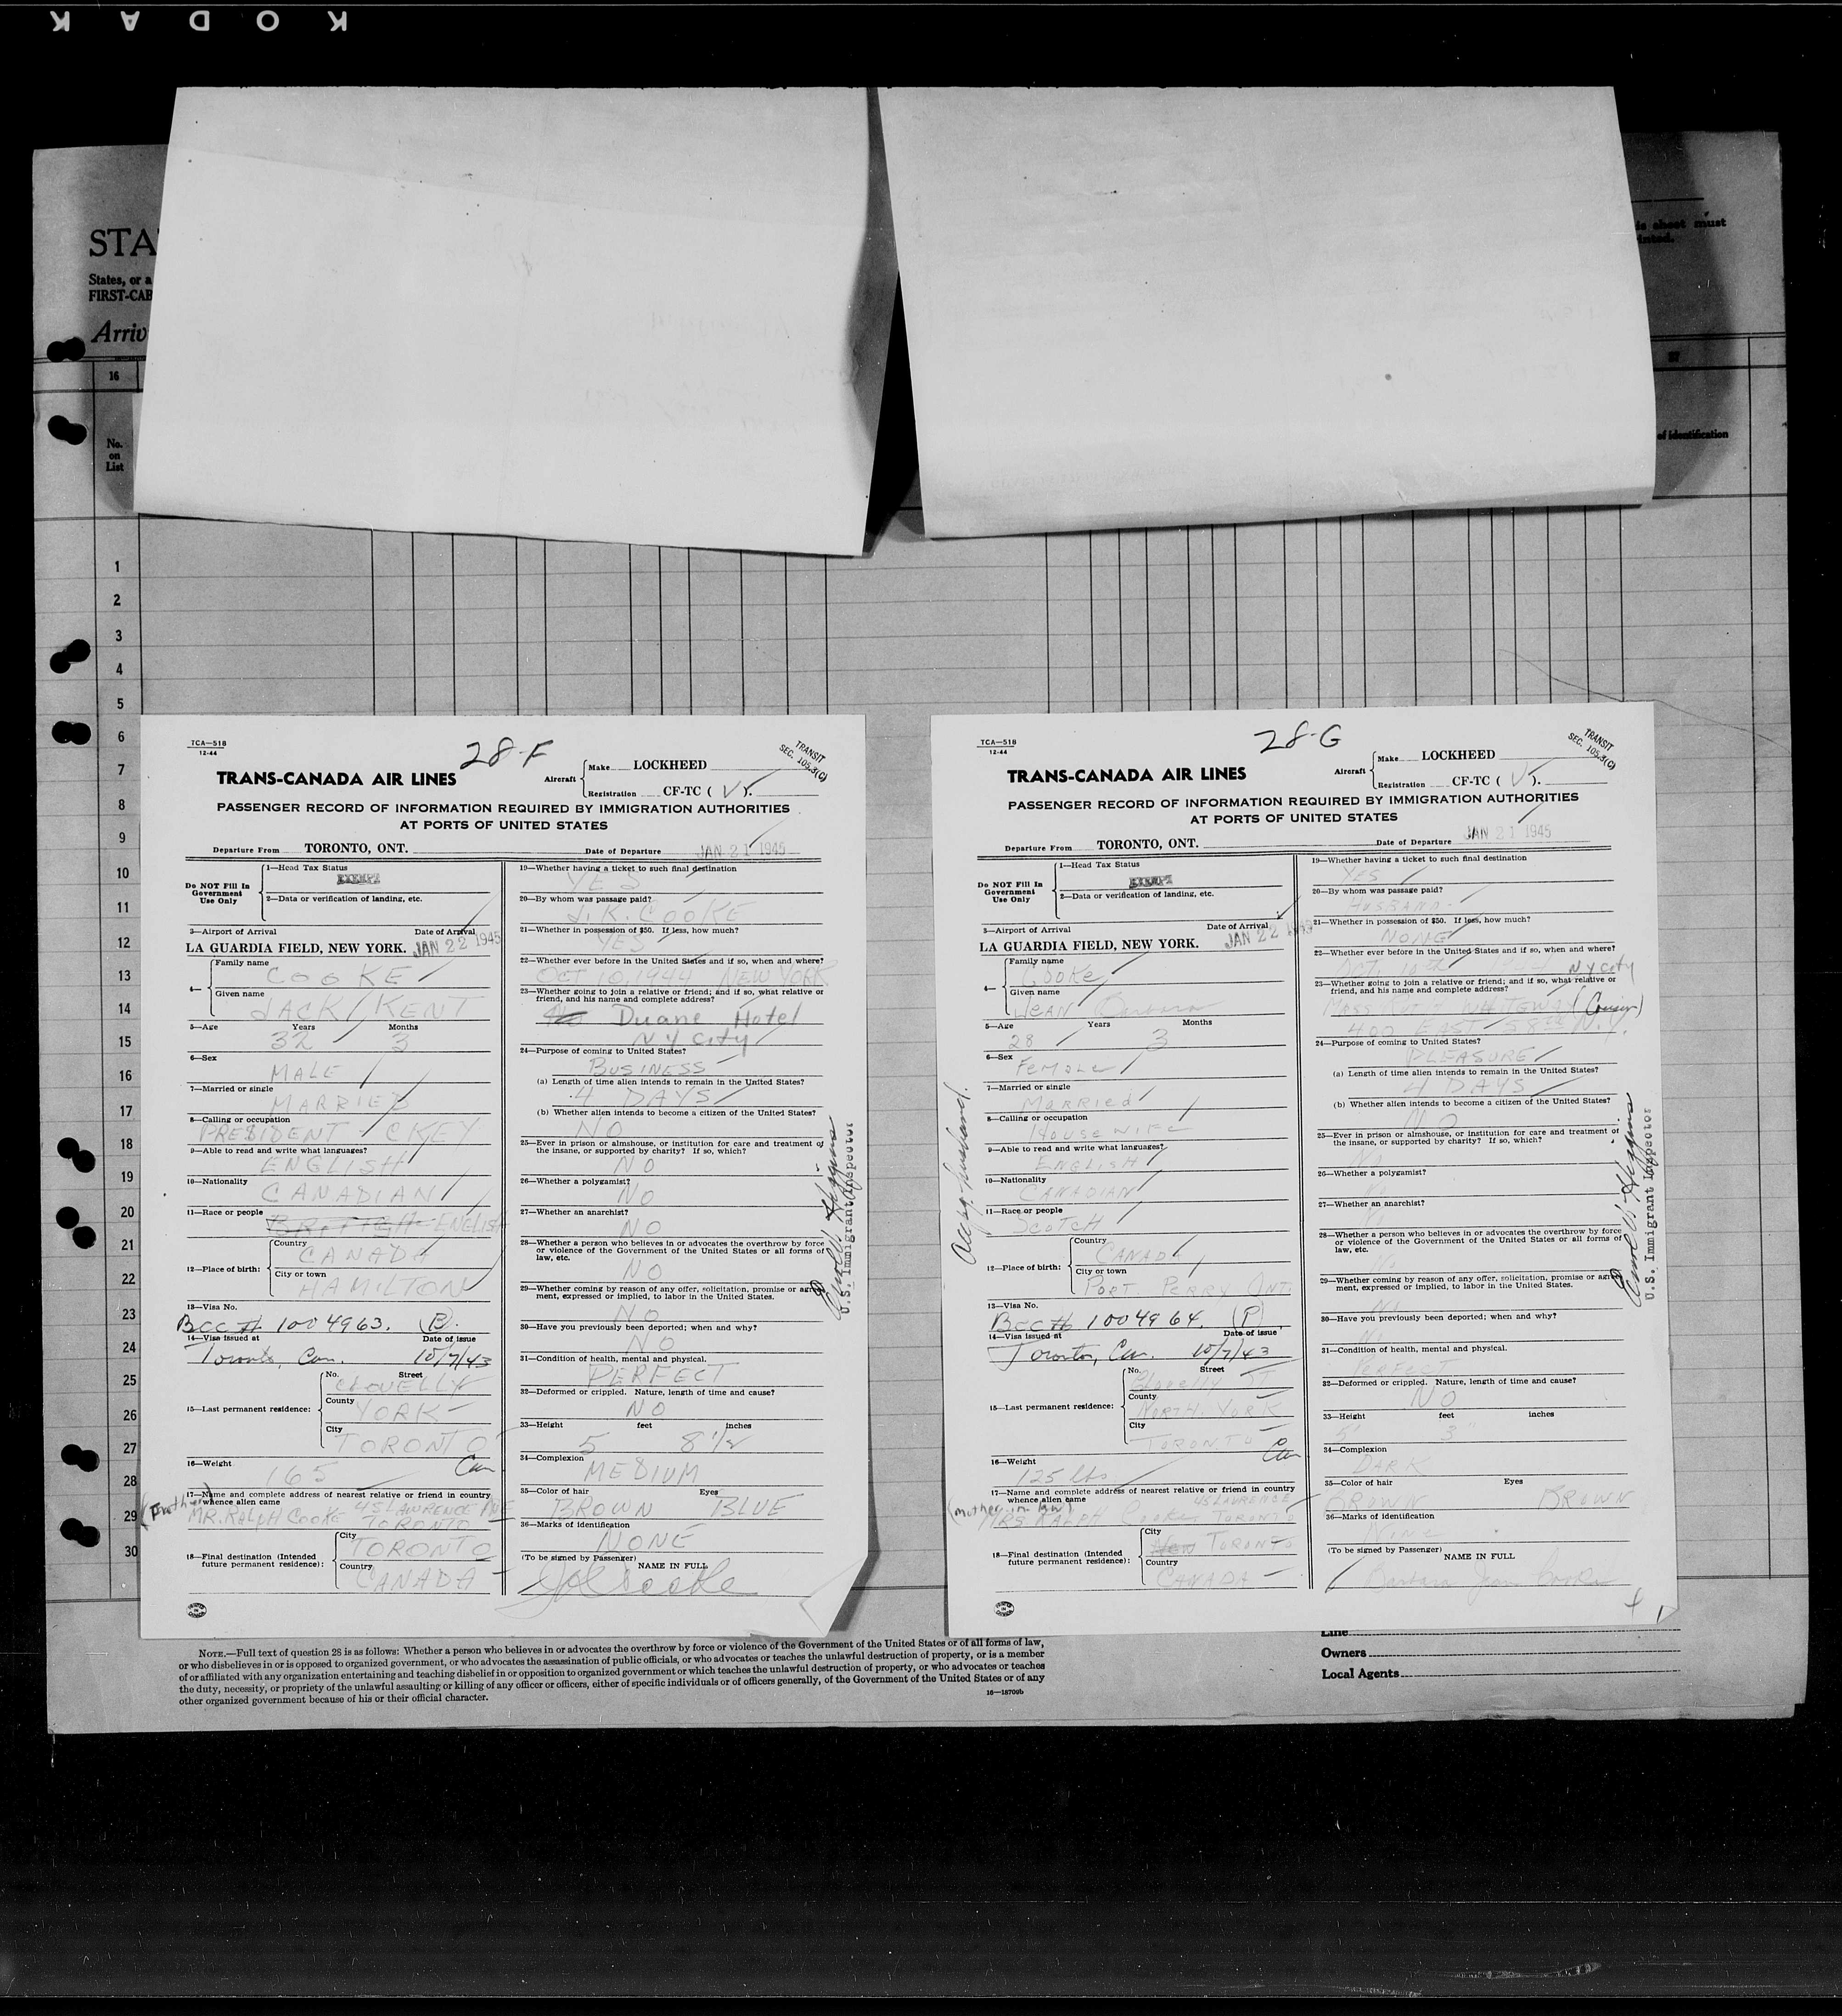 KODAK
STA
States, or a
FIRST-CAB
Arriv
is sheet must
inted.
16
37
No.
on
List
of identification
1
2
3
4
5
6
7
8
9
10
11
12
13
14
15
16
17
18
19
20
21
22
23
24
25
26
27
28
29
30
TCA—518
12-44
28-F
TRANSIT
SEC. 105.3(C)
TRANS-CANADA AIR LINES
Aircraft
Make LOCKHEED
Registration CF-TC ( VJ ).
PASSENGER RECORD OF INFORMATION REQUIRED BY IMMIGRATION AUTHORITIES
AT PORTS OF UNITED STATES
Departure From TORONTO, ONT. Date of Departure JAN 21 1945
Do NOT Fill In
Government
Use Only
1—Head Tax Status
EXEMPT
2—Data or verification of landing, etc.
3—Airport of Arrival Date of Arrival
LA GUARDIA FIELD, NEW YORK. JAN 22 1945
4—
Family name
COOKE
Given name
JACK KENT
5—Age Years Months
32 3
6—Sex
MALE
7—Married or single
MARRIED
8—Calling or occupation
PRESIDENT - CKEY
9—Able to read and write what languages?
ENGLISH
10—Nationality
CANADIAN
11—Race or people
BRITISH ENGLISH
12—Place of birth:
Country
CANADA
City or town
HAMILTON
13—Visa No.
BCC # 1004963. (B).
14—Visa issued at Date of issue
Toronto, Can. 10/7/43
15—Last permanent residence:
No. Street
CLOVELLY
County
YORK
City
TORONTO
Can
16—Weight
165
17—Name and complete address of nearest relative or friend in country
whence alien came 45 LAWRENCE AVE
(Father) MR. RALPH COOKE TORONTO
18—Final destination (Intended
future permanent residence):
City
TORONTO
Country
CANADA
19—Whether having a ticket to such final destination
YES
20—By whom was passage paid?
J. K. COOKE
21—Whether in possession of $50. If less, how much?
YES
22—Whether ever before in the United States and if so, when and where?
OCT 10 1944 NEW YORK
23—Whether going to join a relative or friend; and if so, what relative or
friend, and his name and complete address?
Duane Hotel
N Y City
24—Purpose of coming to United States?
BUSINESS
(a) Length of time alien intends to remain in the United States?
4 DAYS
(b) Whether alien intends to become a citizen of the United States?
NO
25—Ever in prison or almshouse, or institution for care and treatment of
the insane, or supported by charity? If so, which?
NO
26—Whether a polygamist?
NO
27—Whether an anarchist?
NO
28—Whether a person who believes in or advocates the overthrow by force
or violence of the Government of the United States or all forms of
law, etc.
NO
29—Whether coming by reason of any offer, solicitation, promise or agree-
ment, expressed or implied, to labor in the United States.
NO
30—Have you previously been deported; when and why?
NO
31—Condition of health, mental and physical.
PERFECT
32—Deformed or crippled. Nature, length of time and cause?
NO
33—Height feet inches
5 8 1/2
34—Complexion
MEDIUM
35—Color of hair Eyes
BROWN BLUE
36—Marks of identification
NONE
(To be signed by Passenger)
NAME IN FULL
JKCooke
U.S. Immigrant Inspector
PRINTED IN CANADA
TCA—518
12-44
28-G
TRANSIT
SEC. 105.3(C)
TRANS-CANADA AIR LINES
Aircraft
Make LOCKHEED
Registration CF-TC ( VJ ).
PASSENGER RECORD OF INFORMATION REQUIRED BY IMMIGRATION AUTHORITIES
AT PORTS OF UNITED STATES
Departure From TORONTO, ONT. Date of Departure JAN 21 1945
Do NOT Fill In
Government
Use Only
1—Head Tax Status
EXEMPT
2—Data or verification of landing, etc.
3—Airport of Arrival Date of Arrival
LA GUARDIA FIELD, NEW YORK. JAN 22 1945
4—
Family name
Cooke
Given name
Jean Barbara
5—Age Years Months
28 3
6—Sex
Female
7—Married or single
Married
8—Calling or occupation
Housewife
9—Able to read and write what languages?
ENGLISH
10—Nationality
CANADIAN
11—Race or people
SCOTCH
12—Place of birth:
Country
CANADA
City or town
PORT PERRY ONT
13—Visa No.
BCC # 1004964. (P)
14—Visa issued at Date of issue
Toronto, Can. 10/7/43
15—Last permanent residence:
No. Street
County
NORTH YORK
City
TORONTO
Can
16—Weight
125 lbs
17—Name and complete address of nearest relative or friend in country
whence alien came 45 LAWRENCE
(mother in law) MRS RALPH Cooke TORONTO
18—Final destination (Intended
future permanent residence):
City
New TORONTO
Country
CANADA
Accpy. husband.
19—Whether having a ticket to such final destination
YES
20—By whom was passage paid?
HUSBAND
21—Whether in possession of $50. If less, how much?
NONE
22—Whether ever before in the United States and if so, when and where?
N Y City
23—Whether going to join a relative or friend; and if so, what relative or
friend, and his name and complete address?
(Cousin)
400 EAST 58th N.Y.
24—Purpose of coming to United States?
PLEASURE
(a) Length of time alien intends to remain in the United States?
4 DAYS
(b) Whether alien intends to become a citizen of the United States?
NO
25—Ever in prison or almshouse, or institution for care and treatment of
the insane, or supported by charity? If so, which?
No
26—Whether a polygamist?
27—Whether an anarchist?
28—Whether a person who believes in or advocates the overthrow by force
or violence of the Government of the United States or all forms of
law, etc.
29—Whether coming by reason of any offer, solicitation, promise or agree-
ment, expressed or implied, to labor in the United States.
30—Have you previously been deported; when and why?
31—Condition of health, mental and physical.
PERFECT
32—Deformed or crippled. Nature, length of time and cause?
NO
33—Height feet inches
5' 3"
34—Complexion
DARK
35—Color of hair Eyes
BROWN BROWN
36—Marks of identification
None
(To be signed by Passenger)
NAME IN FULL
Barbara Jean Cooke
U.S. Immigrant Inspector
PRINTED IN CANADA
NOTE.—Full text of question 28 is as follows: Whether a person who believes in or advocates the overthrow by force or violence of the Government of the United States or of all forms of law,
or who disbelieves in or is opposed to organized government, or who advocates the assassination of public officials, or who advocates or teaches the unlawful destruction of property, or is a member
of or affiliated with any organization entertaining and teaching disbelief in or opposition to organized government or which teaches the unlawful destruction of property, or who advocates or teaches
the duty, necessity, or propriety of the unlawful assaulting or killing of any officer or officers, either of specific individuals or of officers generally, of the Government of the United States or of any
other organized government because of his or their official character.
16—18709b
Line
Owners
Local Agents